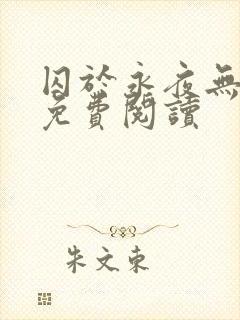 囚於永夜無
免費閱讀
朱文東